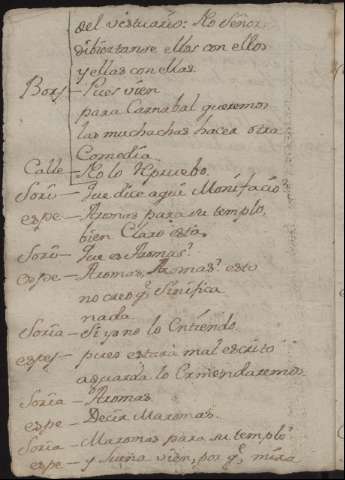 del vestuario: No Señor
dibiertanse ellos con ellos
y ellas con ellas.
Bors — Pues vien
para Carnabal queremos
las muchachas hacer otra
Comedia.
Calle — No lo Repruebo.
Soria — Que dice aqui Monifacio
espe — Aromas para su templo
bien Claro esta,
Soria — Que es Aromas?
espe — Aromas, Aromas? esto
no creo q.e sinifica
nada.
Soria — Si yo no lo Entiendo.
espe — pues estará mal escrito
aguarda lo Enmendaremos
Soria — Aromas.
espe — Decir Maromas.
Soria — Maromas para su templo?
espe — y suena vien, por q.e mira